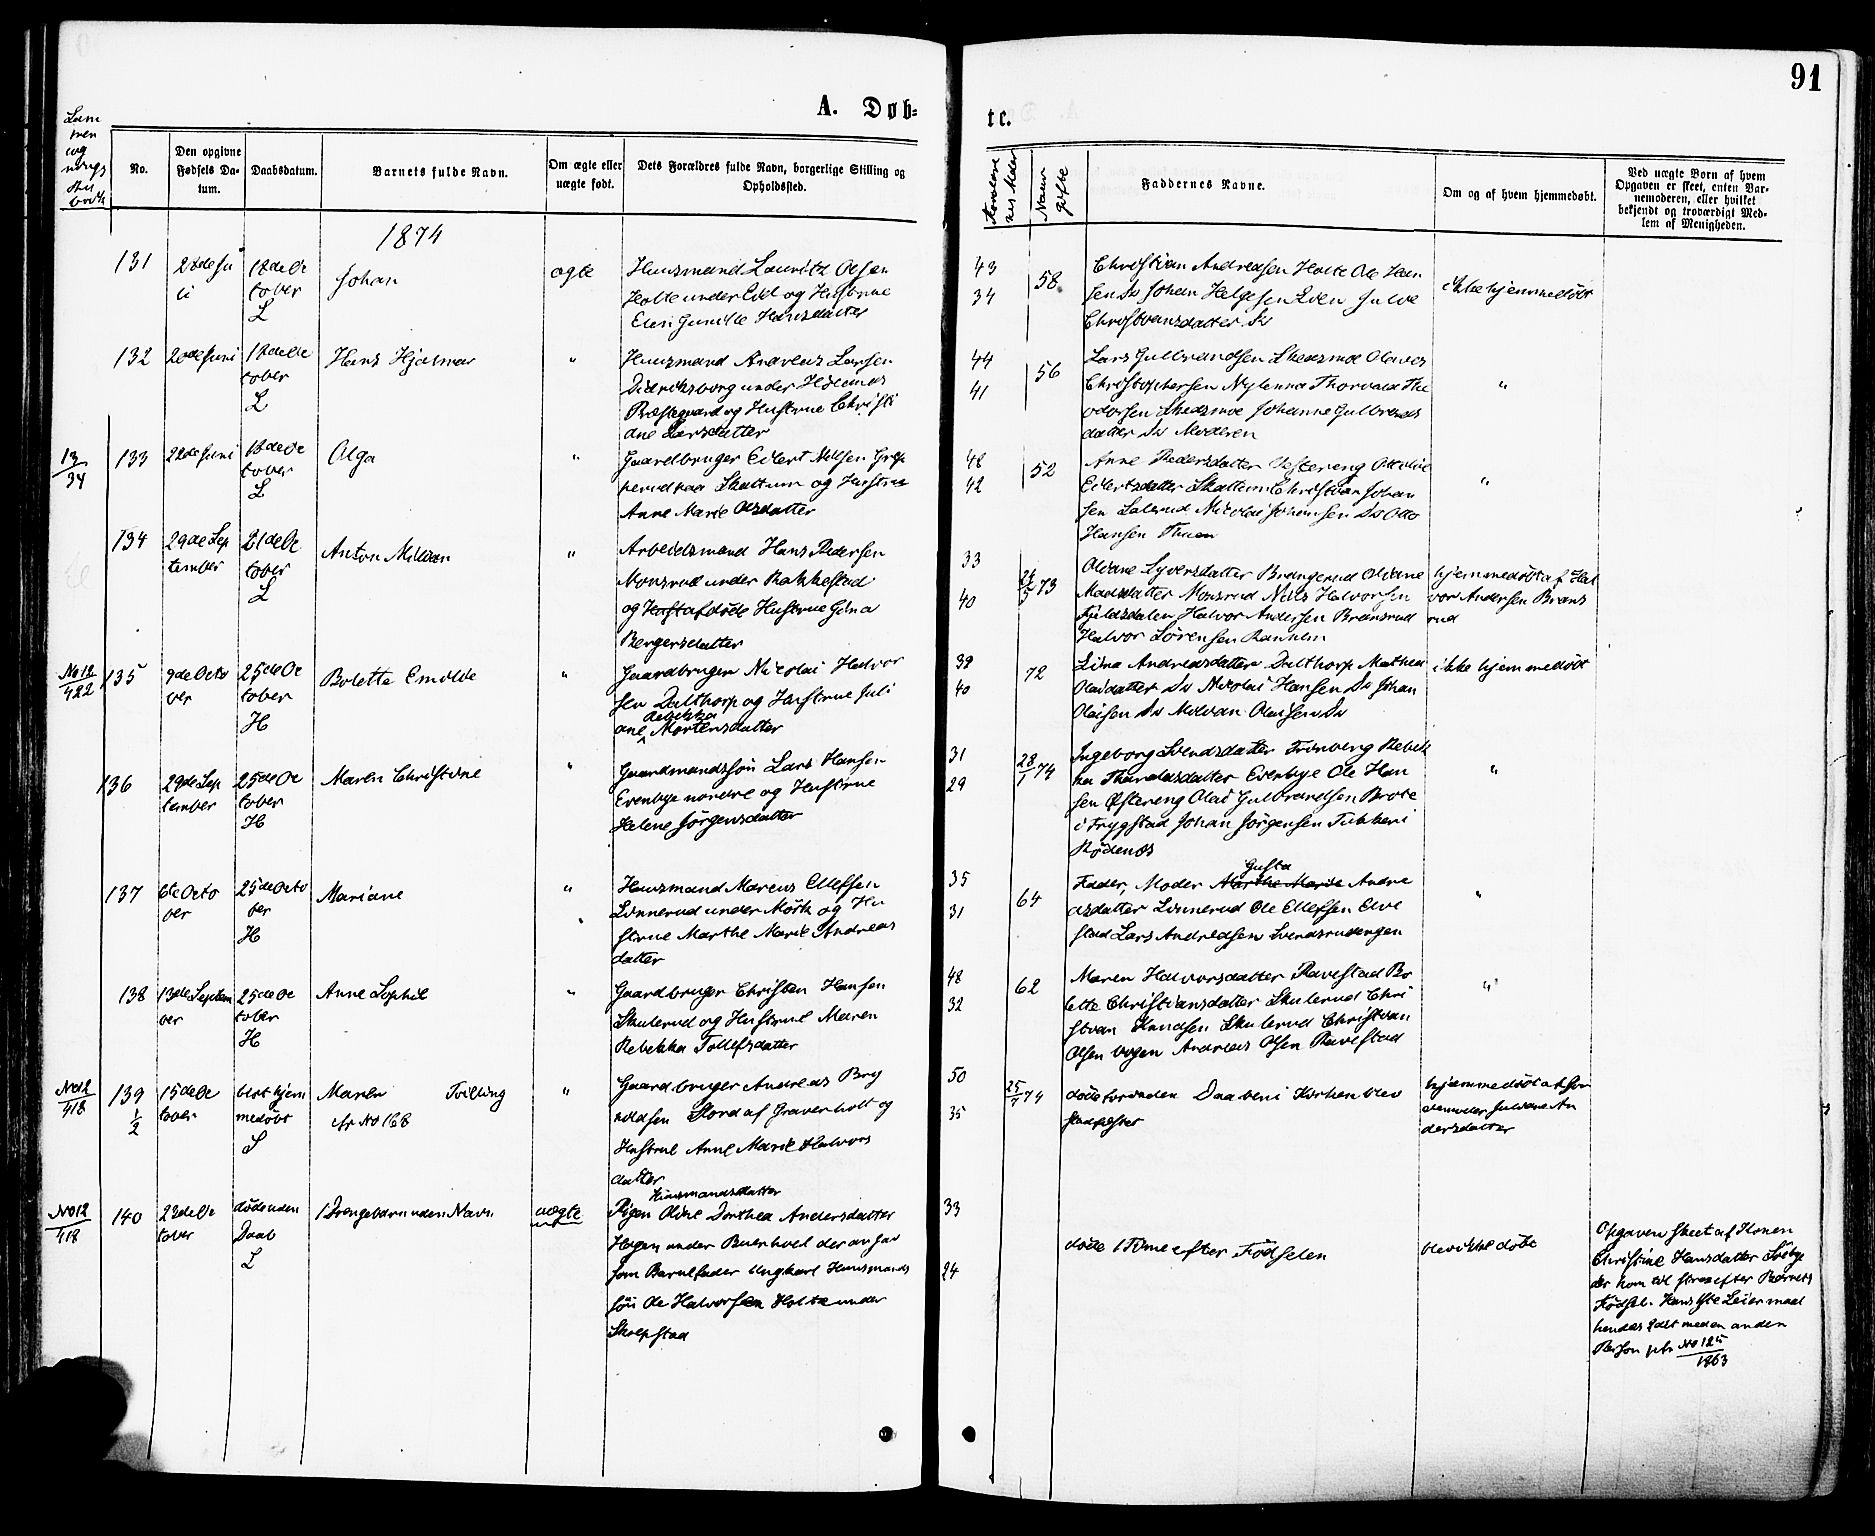 91
A. Døb=
te.
No.
Den opgivne Fødsels Da-
tum.
Daabsdatum.
Barnets fulde Navn.
Om ægte eller
uægte født.
Dets Forældres fulde Navn, borgerlige Stilling og
Opholdssted.
Faddernes Navne.
Om og af hvem hjemmedøbt.
Ved uægte Børn af hvem
Opgaven er skeet, enten Bar-
nemoderen, eller hvilket
bekjendt og troværdigt Med-
lem af Menigheden.
1874
131
18de Oc
tober
L
Johan
ægte
Huusmand Lauritz Olsen
Holte under Eid og Hustrue
Eleri Gunille Hansdatter
43
34
58
Christian Andreasen Holte Ole Han
sen Ds Johan Helgesen Eden Julie
Christiansdatter Ds
ikke hjemmedøbt
132
20de Juni
18de Oc
tober
L
Hans Hjalmar
"
Huusmand Andreas Larsen
Didriksborg under Hølands
Præstegaard og Hustrue Christi
ane Larsdatter
44
41
56
Lars Gulbrandsen Skedsmoe Olaves
Christophersen Nylenna Thorvald The
odorsen Skedsmoe Johanne Gulbrands
datter Ds Moderen
"
13
34
133
22de Juni
18de Oc
tober
L
Olga
"
Gaardbruger Eilert Nilsen
paa Skattum og Hustrue
Anne Marie Olsdatter
48
42
52
Anne Pedersdatter Østereng Ottilie
Eilertsdatter Skattum Christian Johan
sen Lalerud Nicolai Johansen Ds Otto
Hansen Thuen
"
134
29de Sep
tember
21de Oc
tober
L
Anton Milian
"
Arbeidsmand Hans Pedersen
Monsrud under Rakkestad
og afdøde Hustrue Gina
Bergersdatter
33
40
73
Oliane Syversdatter Brangerud Oliane
Madsdatter Monsrud Nils Halvorsen
Fjeldsdalen Halvor Andersen Bransrud
Halvor Sørensen Ranheim
hjemmedøbt af Hal
vor Andersen Brans
rud
No 12
422
135
9de Octo
ber
25de Oc
tober
H
Bolette Emilie
"
Gaardbruger Nicolai Halvor
sen Dalthorp og Hustrue Juli
ane Rebekka Mortensdatter
39
40
72
Lina Andreasdatter Dalthorp Mathea
Olaidatter Ds Nicolai Hansen Ds Johan
Olaisen Ds Milian Olausen Ds
ikke hjemmedøbt
136
29de Sep
tember
25de Oc
tober
H
Maren Christine
"
Gaardmandssøn Lars Hansen
Evenbye nordre og Hustrue
Helene Jørgensdatter
31
29
28
1 74
Ingeborg Svendsdatter Tronberg Rebek
ka Thoralsdatter Evenbye Ole Han
sen Østereng Olai Gulbrandsen Brote
i Trygstad Johan Jørgensen Tukkeri
Rødenæs
"
137
6te Octo
ber
25de Octo
ber
H
Mariane
"
Huusmand Marcus Ellefsen
Linnerud under Mørk og Hu
strue Marthe Marie Andreas
datter
35
31
64
Gusta
Fader, Moder Marthe Marie Andre
asdatter Linnerud Ole Ellefsen Elve
stad Lars Andreasen Svendsrudengen
"
138
13de Septem
ber
25de Oc
tober
H
Anne Sophie
"
Gaardbruger Christen Hansen
Skulerud og Hustrue Maren
Rebekka Tollefsdatter
48
32
62
Maren Halvorsdatter Ravestad Bo
lette Christiansdatter Skulerud Chri
stian Knudsen Skulerud Christian
Olsen Andreas Olsen Ravestad
"
No 12
418
139
1
2
15de Oc
tober
blot hjem
medøbt
S
Maren Tvilling
cfr No 168
"
Gaardbruger Andreas Bry
nildsen Stord af Gravenholt og
Hustrue Anne Marie Halvors
datter
50
35
25
7 74
døde forinden Daaben i Kirken blev
stadfæstet
hjemmedøbt af Jor
demoder Juliane An
dersdatter
No 12
418
140
23de Oc
tober
døde uden
Daab
L
1 Drengebarn uden Navn
uægte
Huusmandsdatter
Pigen Oline Dorthea Andersdatter
Hagen under Buerhoel der angav
som Barnefader Ungkarl Huusmands
søn Ole Halvorsen Holte under
Skolpstad
33
24
døde 1 Time efter Fødselen
blev ikke døbt
Opgaven skeet af Konen
Christine Hansdatter
der kom til strax efter Barnets
Fødsel. Hans 1ste Leiermaal
hendes 2det med en anden
Person jvfr No 12
1863